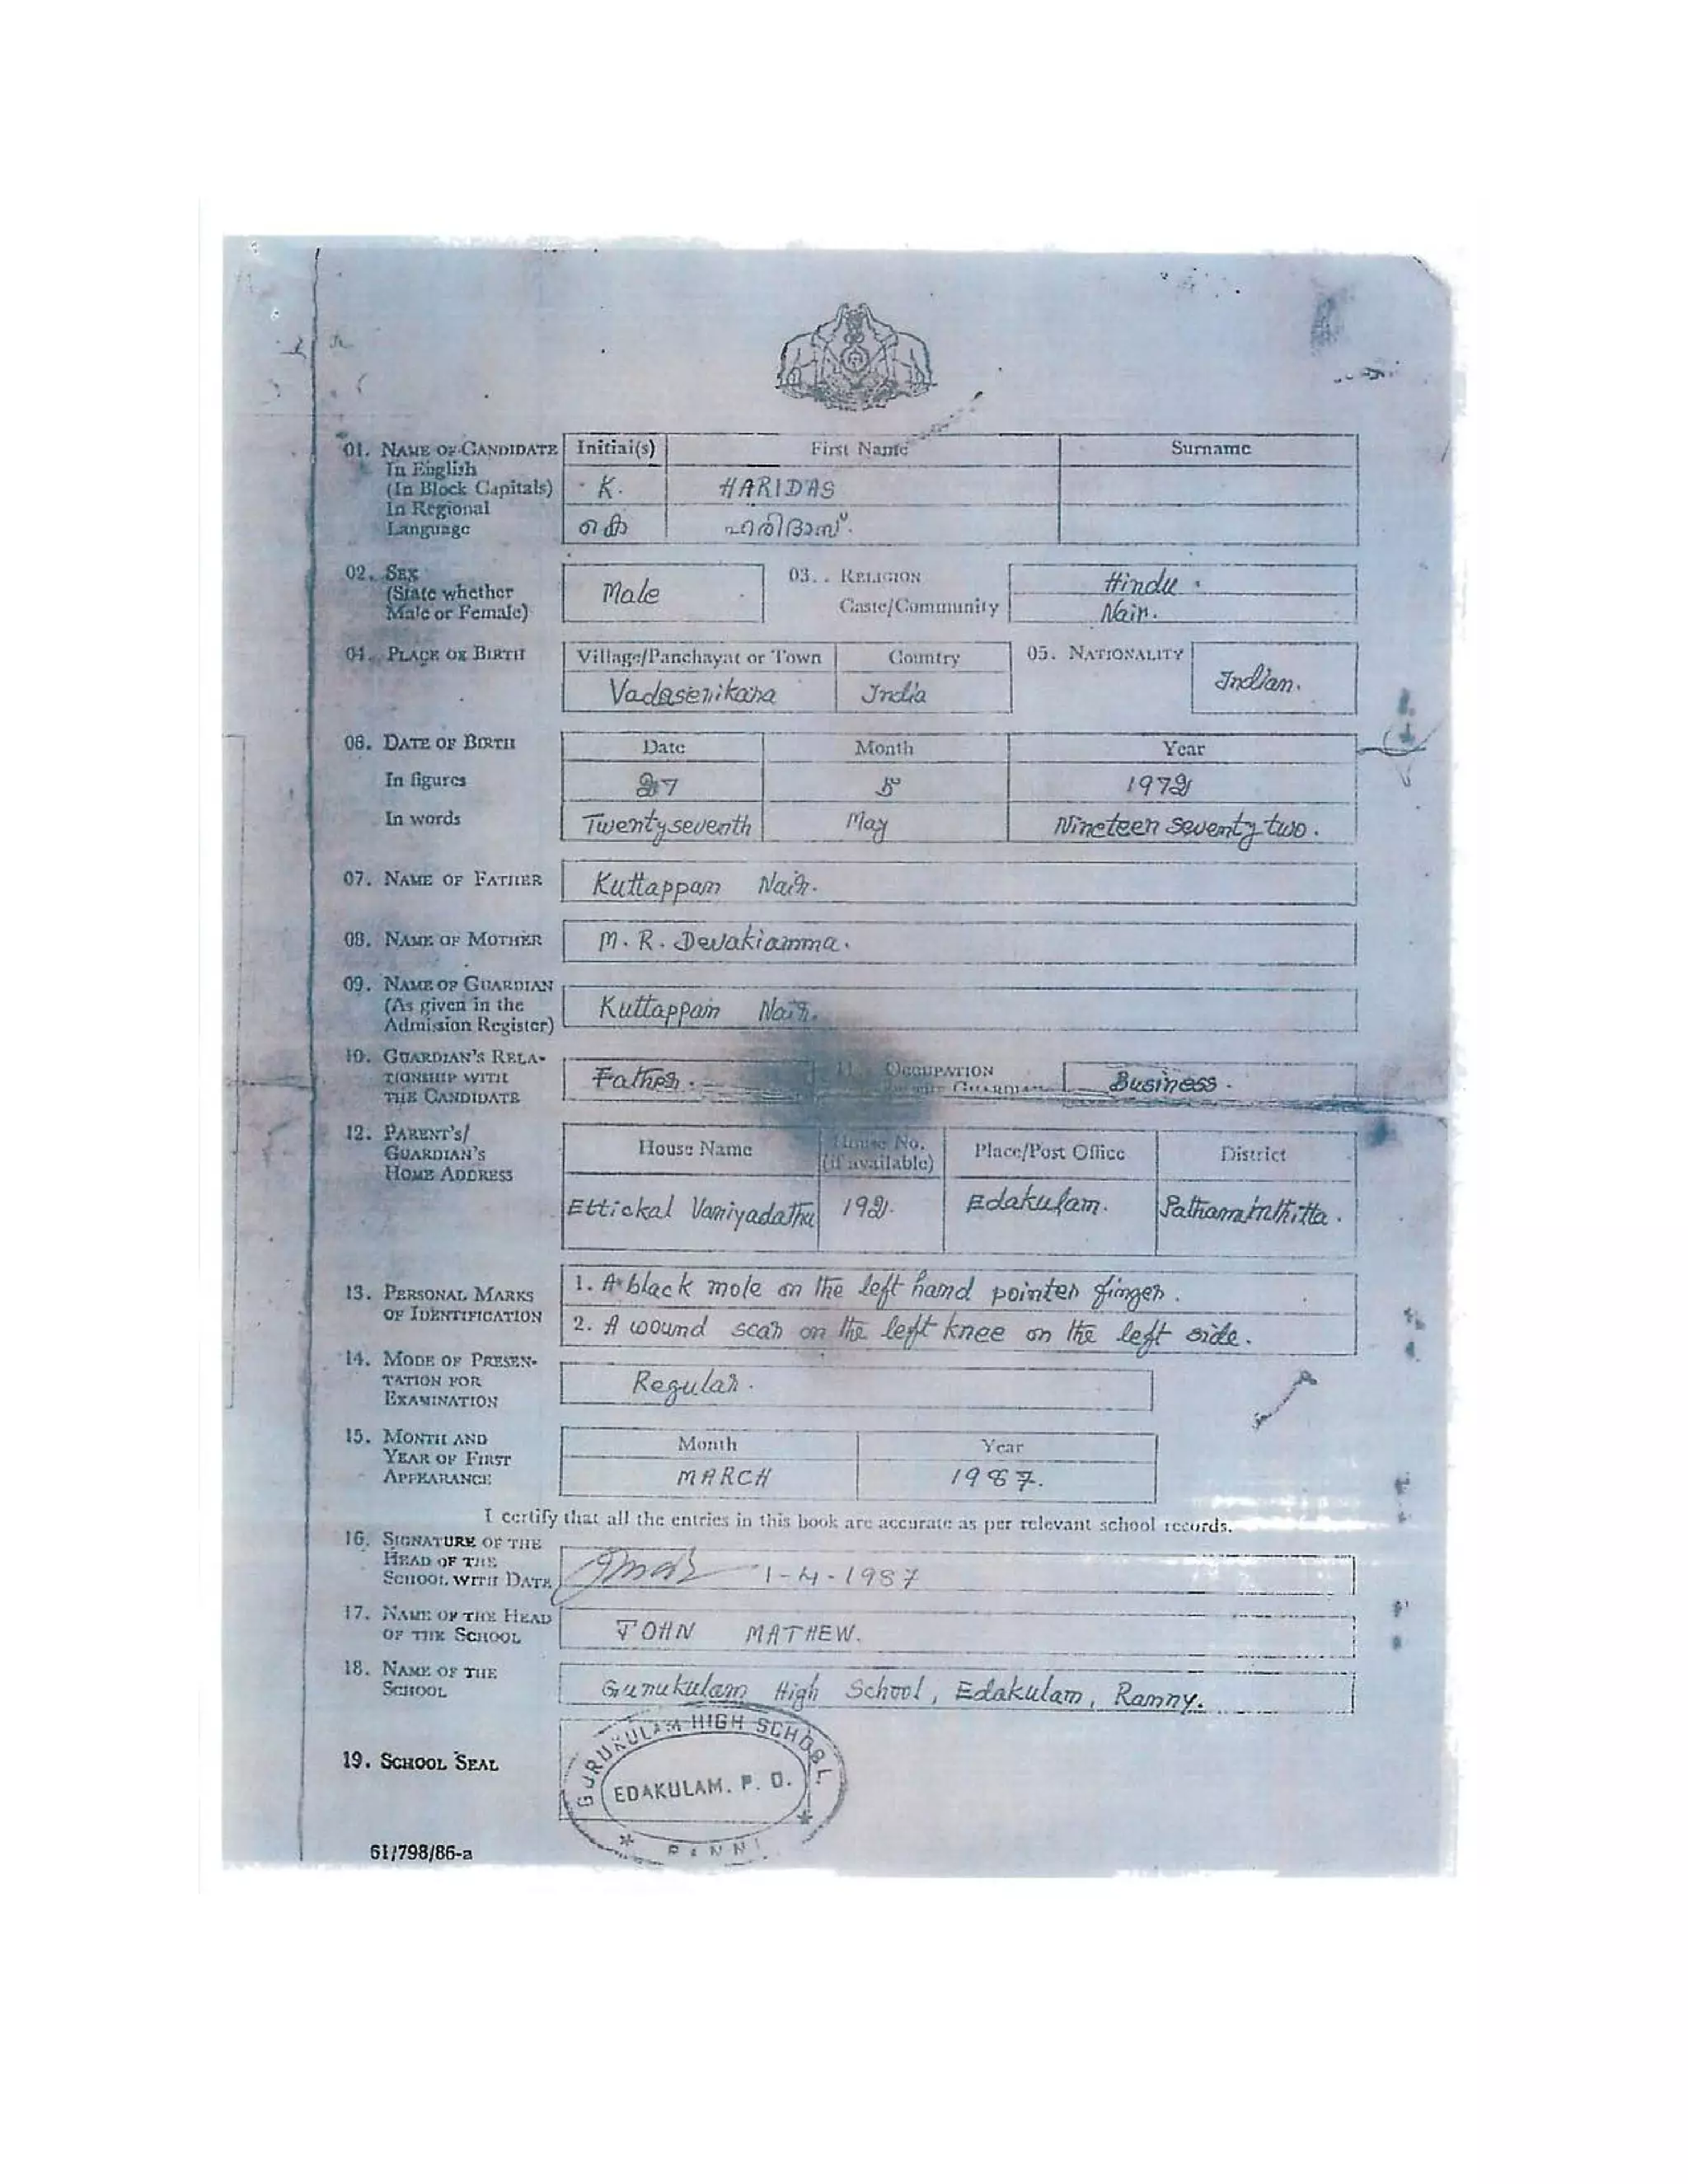 01. NAME OF CANDIDATE Initial(s) First Name Surname
In English
(In Block Capitals) K. HARIDAS
In Regional
Language കെ ഹരിദാസ്.
02. SEX
(State whether
Male or Female) Male
03. RELIGION Hindu.
Caste/Community Nair.
04. PLACE OF BIRTH Village/Panchayat or Town Country
Vadasenikara India
05. NATIONALITY Indian.
06. DATE OF BIRTH Date Month Year
In figures 27 5 1972
In words Twentyseventh May Nineteen seventy two.
07. NAME OF FATHER Kuttappan Nair.
08. NAME OF MOTHER M. R. Devakiamma.
09. NAME OF GUARDIAN
(As given in the
Admission Register) Kuttappan Nair.
10. GUARDIAN'S RELA-
TIONSHIP WITH
THE CANDIDATE Father.
11. OCCUPATION
GUARDIAN Business.
12. PARENT'S/
GUARDIAN'S
HOME ADDRESS
House Name House No. (if available) Place/Post Office District
Ettickal Vaniyadathu 192. Edakulam. Pathanamthitta.
13. PERSONAL MARKS
OF IDENTIFICATION
1. A black mole on the left hand pointer finger.
2. A wound scar on the left knee on the left side.
14. MODE OF PRESEN-
TATION FOR
EXAMINATION Regular.
15. MONTH AND
YEAR OF FIRST
APPEARANCE
Month Year
MARCH 1987.
I certify that all the entries in this book are accurate as per relevant school records.
16. SIGNATURE OF THE
HEAD OF THE
SCHOOL WITH DATE 1-4-1987
17. NAME OF THE HEAD
OF THE SCHOOL JOHN MATHEW.
18. NAME OF THE
SCHOOL Gurukulam High School, Edakulam, Ranny.
19. SCHOOL SEAL
GURUKULAM HIGH SCHOOL
EDAKULAM. P. O.
RANNI
61/798/86-a